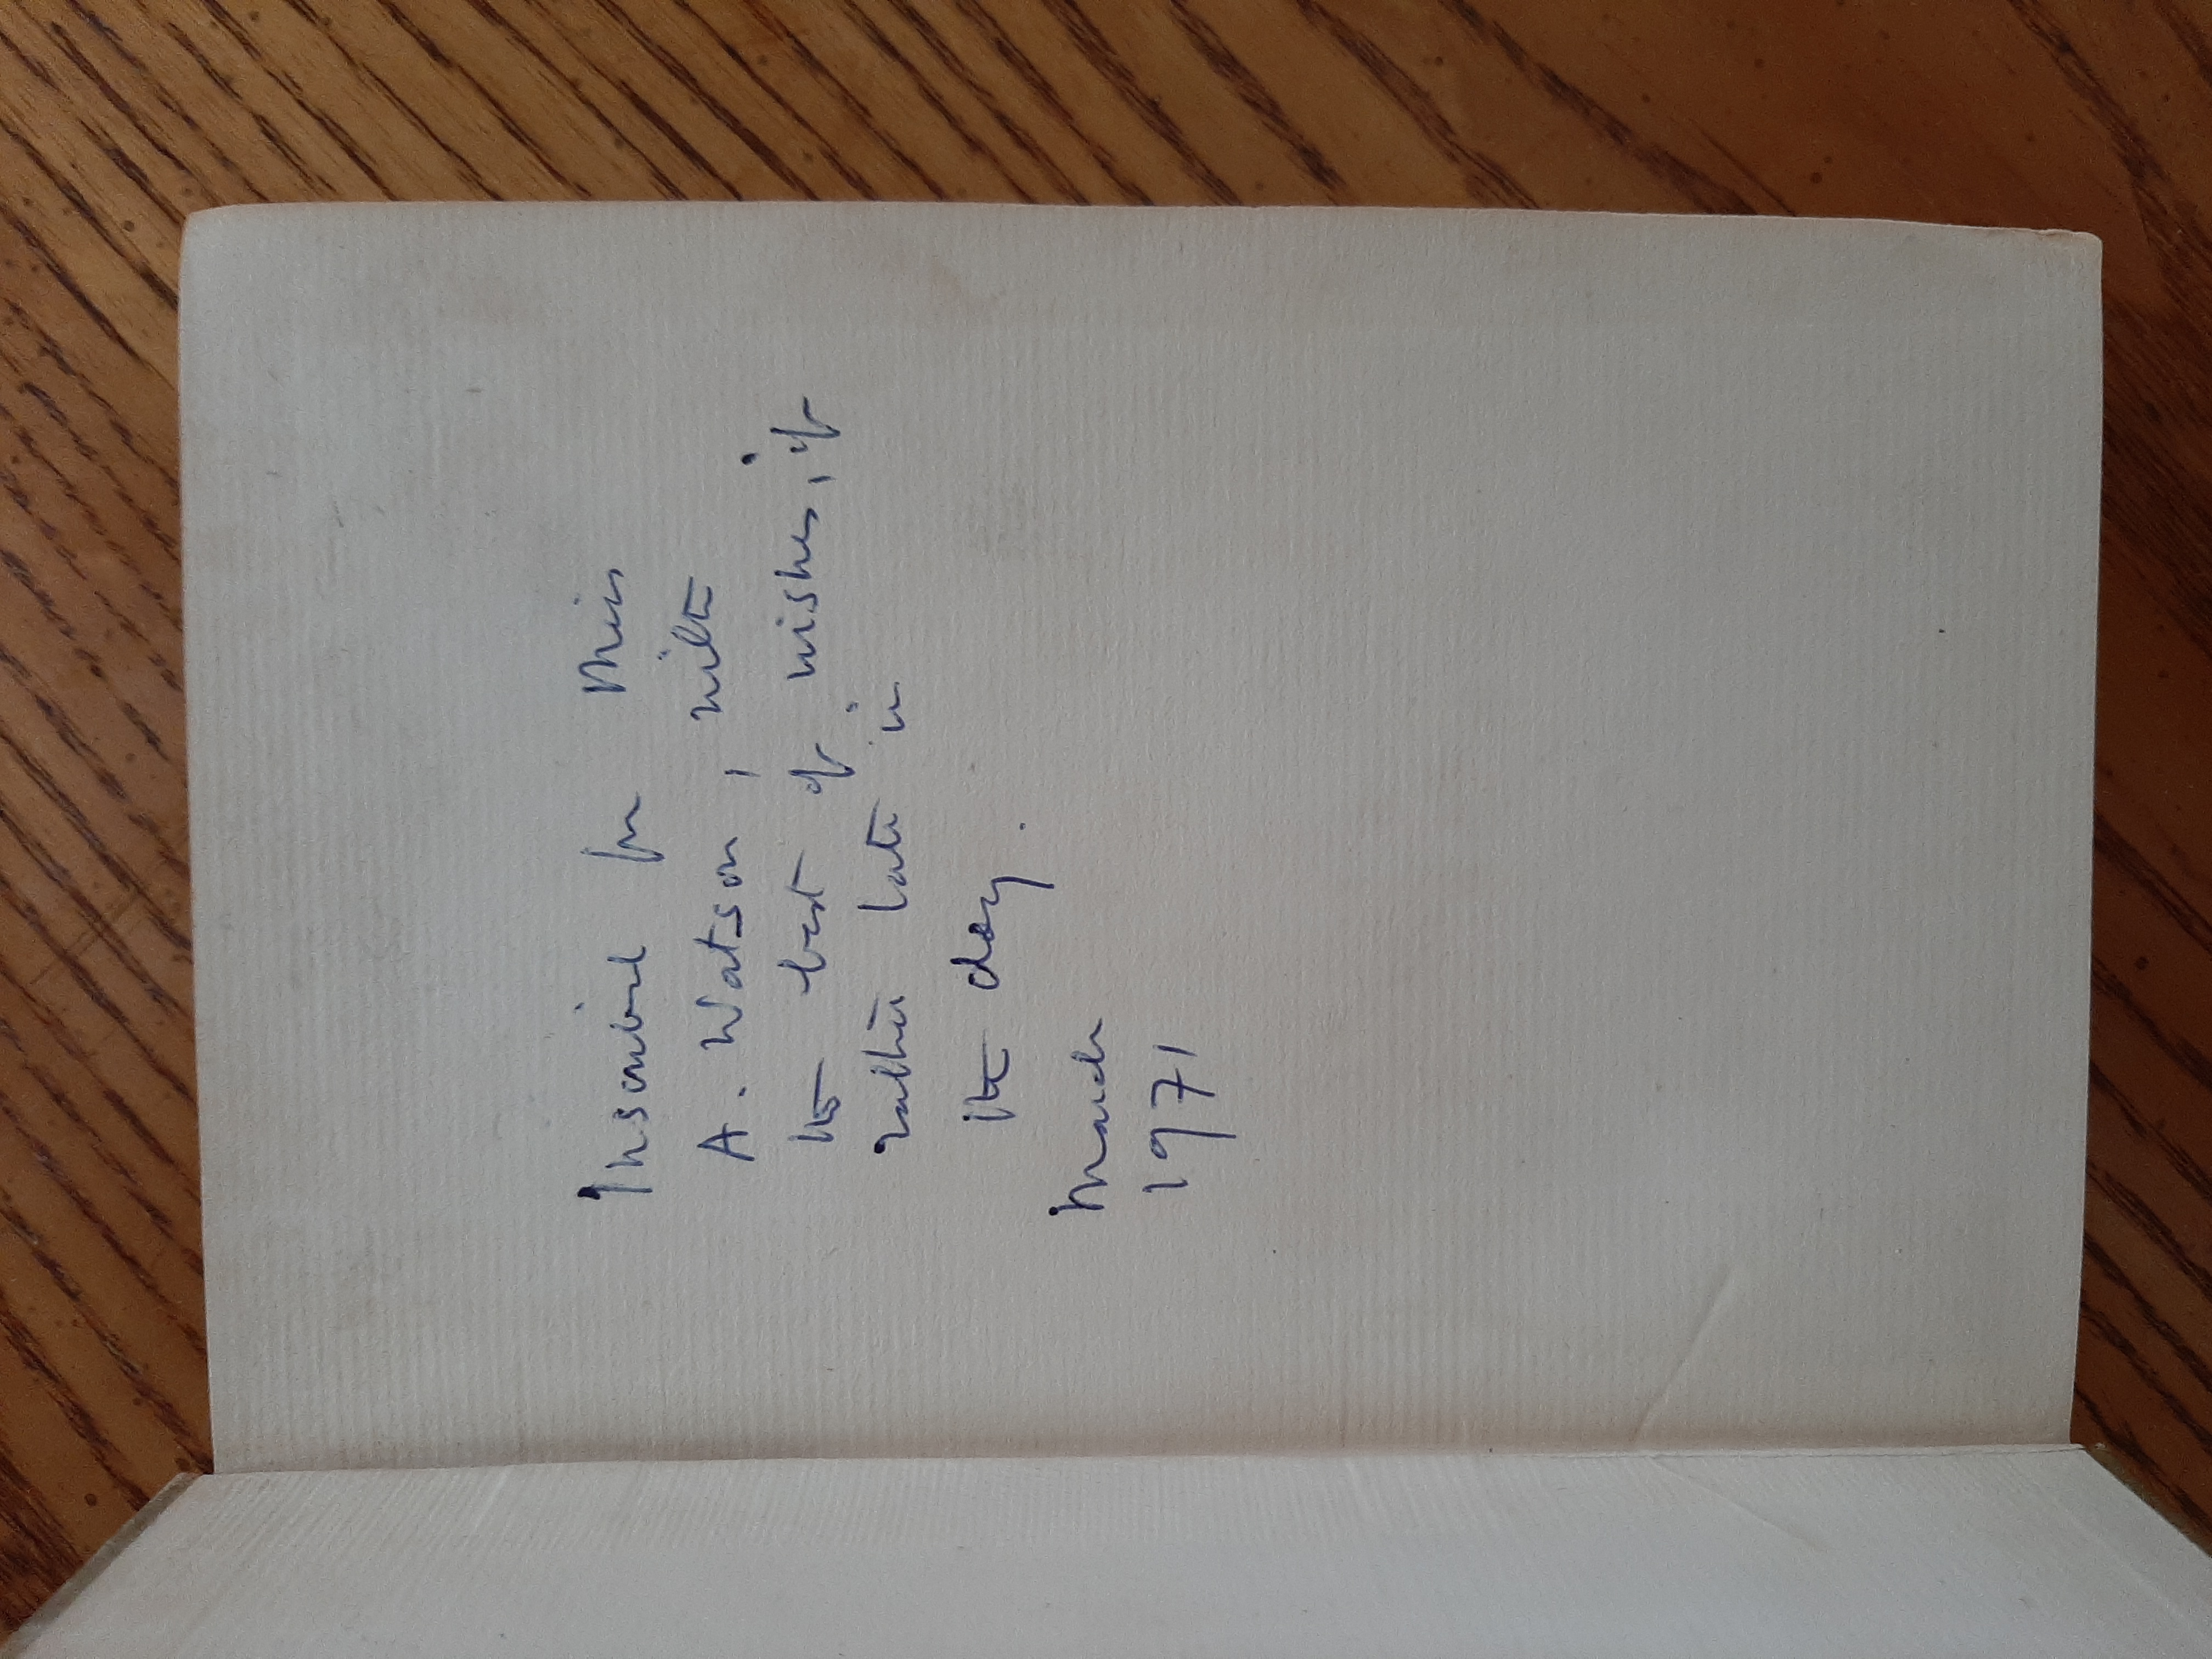 Inscribed for Miss
A. Watson, with
the best of wishes, if
rather late in
the day.
March
1971